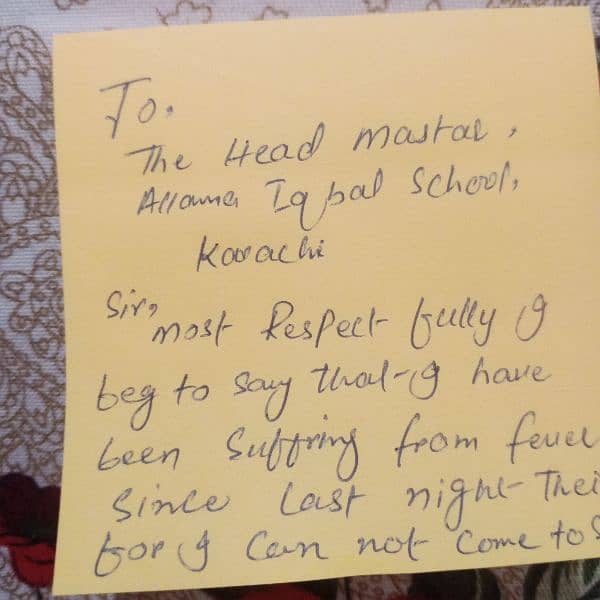 To.
The Head mastar,
Allama Iqbal School,
Karachi
Sir,
most Respect fully I
beg to say that I have
been Suffring from fever
Since Last night Thei
for I Can not Come to S